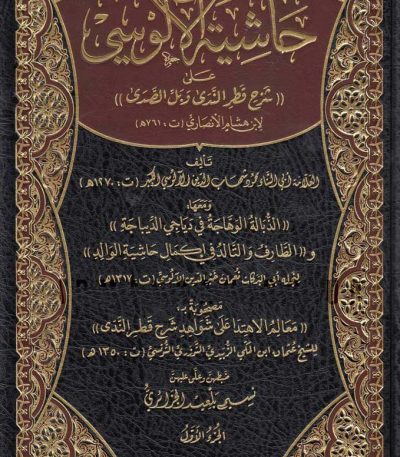 حاشية الآلوسي
على
(( شرح قطر الندى وبل الصدى ))
لابن هشام الأنصاري (ت: ٧٦١هـ)
تأليف
العلامة أبي الثناء محمود شهاب الدين الآلوسي الكبير (ت: ١٢٧٠هـ)
ومعها:
(( الذبالة الوهاجة في دياجي الديباجة ))
و (( الطارف والتالد في إكمال حاشية الوالد ))
لنجله أبي البركات نعمان خير الدين الآلوسي (ت: ١٣١٧هـ)
مصحوبة بـ:
(( معالم الاهتدا على شواهد شرح قطر الندى ))
للشيخ عثمان ابن المكي الزبيدي التوزري التونسي (ت: ١٣٥٠هـ)
ضبطهن وعلق عليهن
نسيم بلعيد الجزائري
الجزء الأول